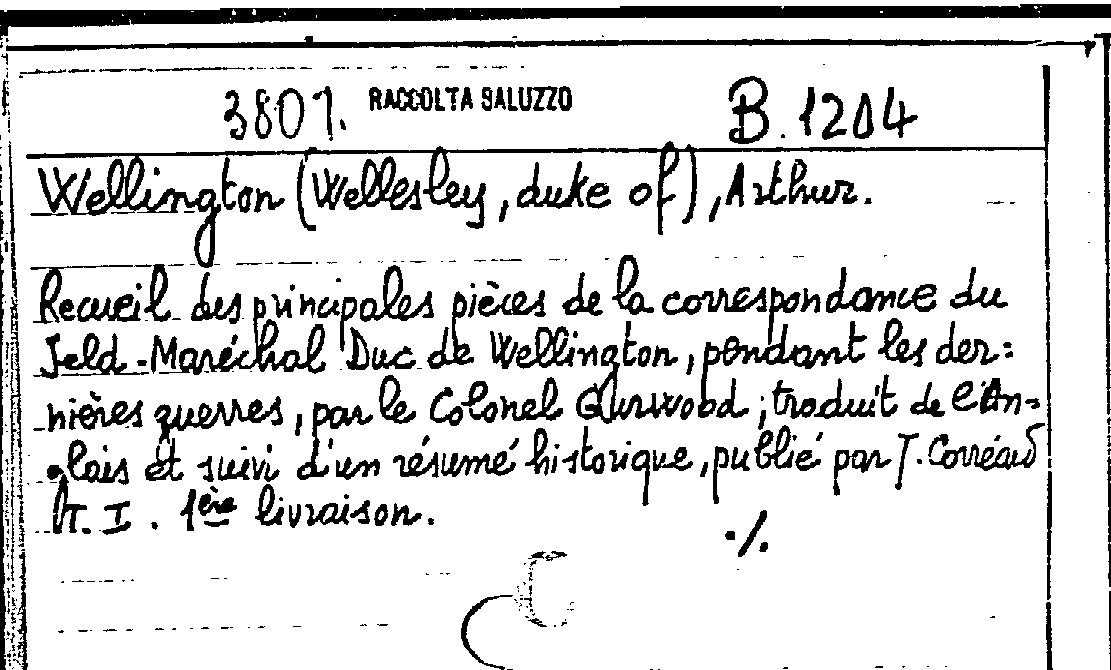 3801. RACCOLTA SALUZZO B. 1204
Wellington (Wellesley, duke of), Arthur.
Recueil des principales pièces de la correspondance du
Feld-Maréchal Duc de Wellington, pendant les der=
nières guerres, par le Colonel Gurwood; traduit de l'An=
glais et suivi d'un résumé historique, publié par J. Corréard
T. I. 1ère livraison.
./.